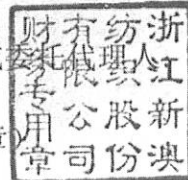 浙江新澳
纺织股份
有限公司
财务专用章
委托代理人